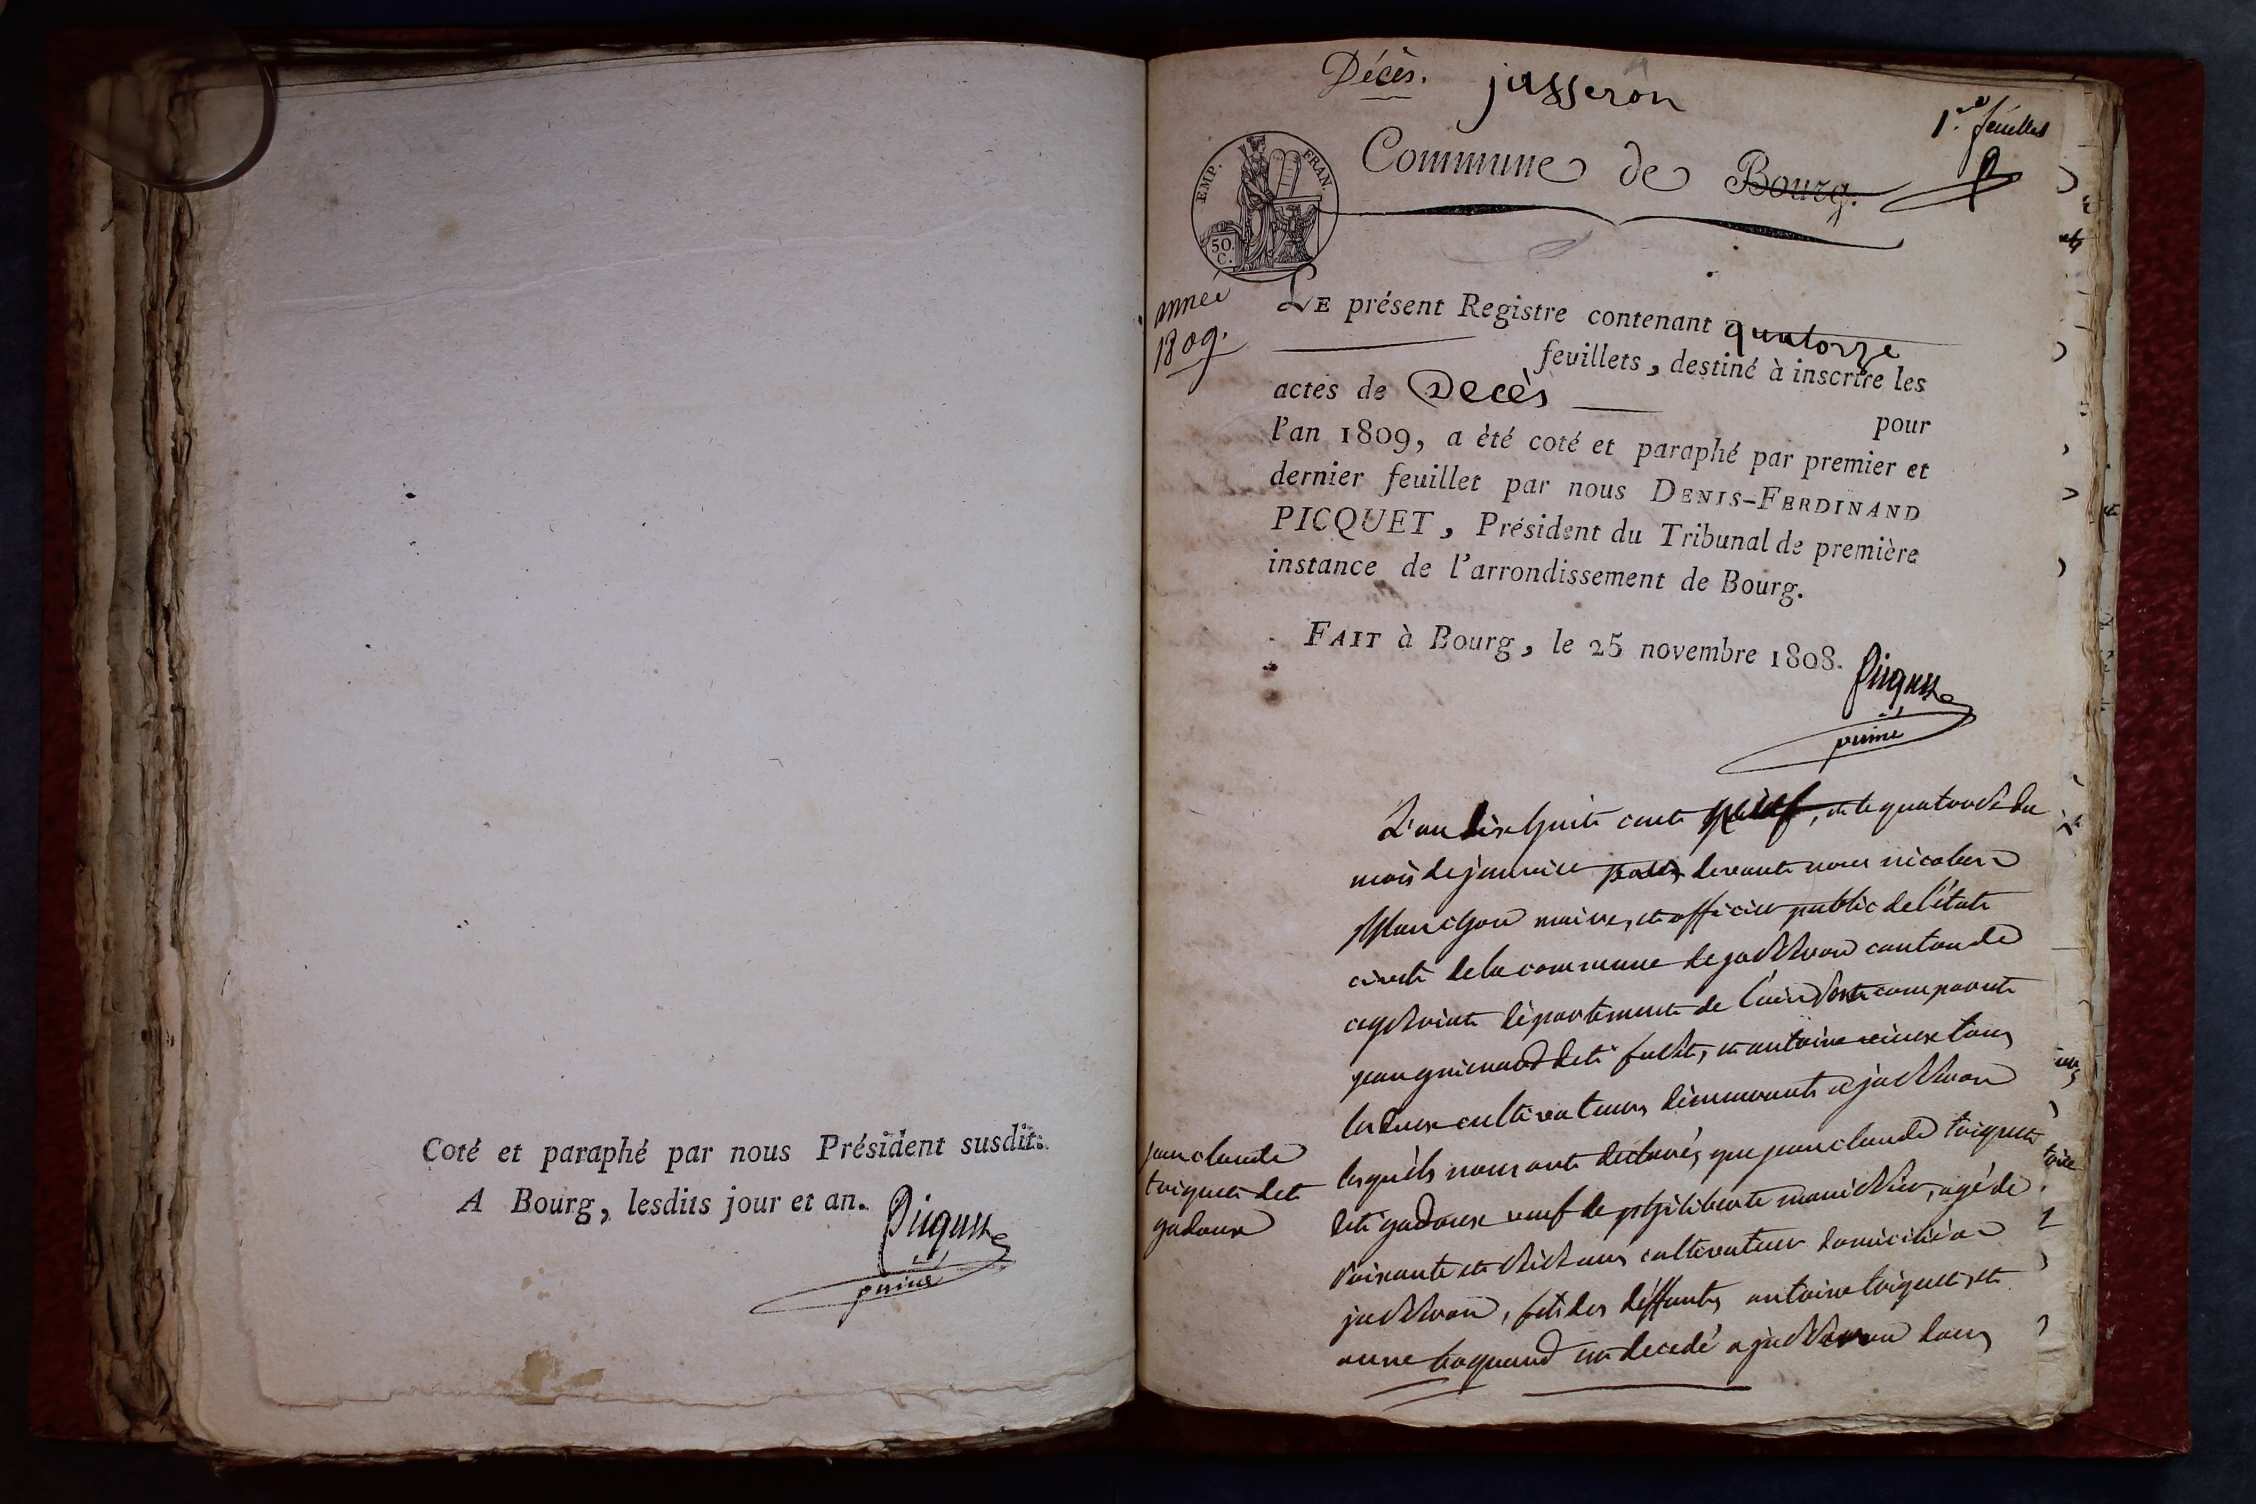 Coté et paraphé par nous Président susdit.
A Bourg, lesdits jour et an.
Picquet
Décès. jasseron
1.er feuillet
Commune de Bourg.
EMP. FRAN.
50. C.
année
1809.
LE présent Registre contenant quatorze
feuillets, destiné à inscrire les
actes de Decès pour
l'an 1809, a été coté et paraphé par premier et
dernier feuillet par nous DENIS-FERDINAND
PICQUET, Président du Tribunal de première
instance de l'arrondissement de Bourg.
FAIT à Bourg, le 25 novembre 1808.
Picquet
L'an dix huit cent neuf, et le quatorze du
mois de janvier par devant nous nicolas
planchon maire, et officier public de l'état
civile de la commune de jasseron canton de
ceyseriat département de l'ain sont comparut
jean dit et antoine tous
les deux cultivateurs demeurants a jasseron
jean claude
toiquet dit
gadoux
lesquels nous ont declarés que jean claude toiquet
dit gadoux veuf de philiberte agé de
soixante et six ans cultivateur domicilié a
jasseron, fils des deffunts antoine toiquet, et
anne est decedé a jasseron dans